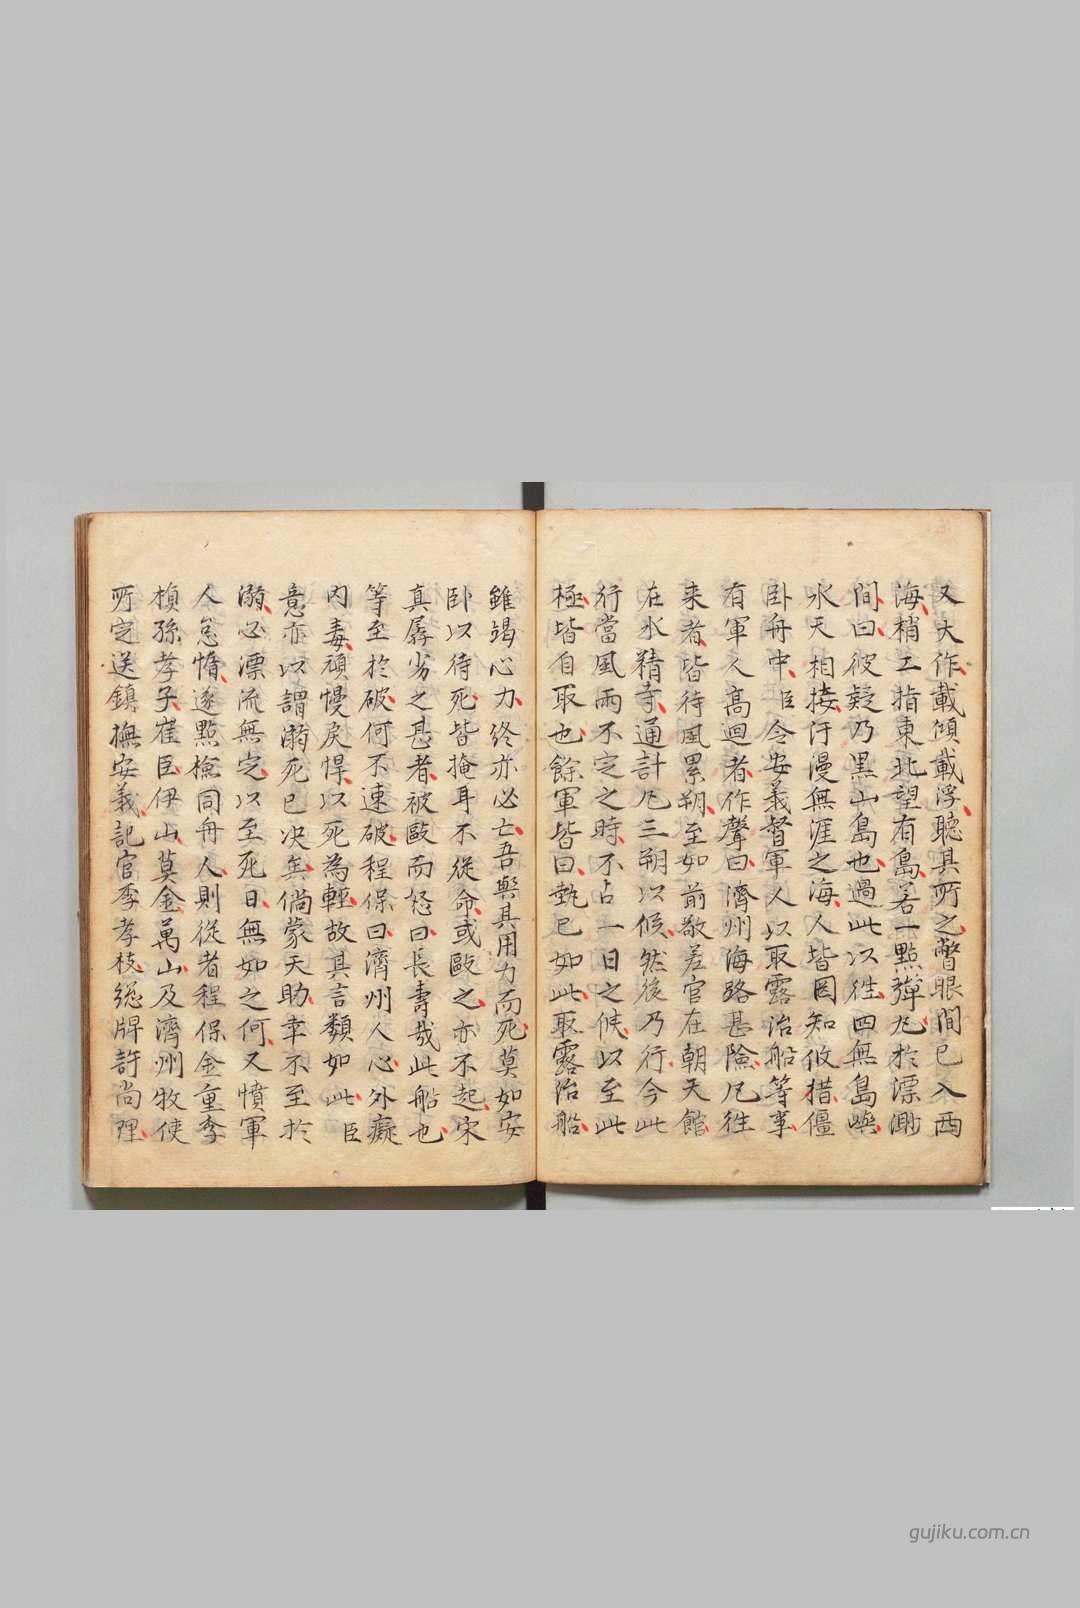 又大作載傾載浮聽其所之瞥眼間已入西
海梢工指東北望有島若一點彈丸於漂渺
間曰彼疑乃黑山島也過此以徃四無島嶼
水天相接汗漫無涯之海人皆罔知攸措僵
卧舟中臣令安義督軍人以取露治船等事
有軍人高迴者作聲曰濟州海路甚險凡徃
来者皆待風累朔至如前敬差官在朝天館
在水精寺通計凢三朔以候然後乃行今此
行當風雨不定之時不占一日之候以至此
極皆自取也餘軍皆曰埶已如此取露治船
雖竭心力終亦必亡吾與其用力而死莫如安
卧以待死皆掩耳不從命或毆之亦不起宋
真孱劣之甚者被毆而怒曰長壽哉此船也
等至於破何不速破程保曰濟州人心外癡
内毒頑慢戾悍以死為輕故其言類如此臣
意亦以謂溺死已决矣倘蒙天助幸不至於
溺必漂流無定以至死日無如之何又憤軍
人怠惰遂點檢同舟人則從者程保金重李
楨孫孝子崔巨伊山莫金萬山及濟州牧使
所定送鎮撫安義記官李孝枝捴牌許尚理
gujiku.com.cn